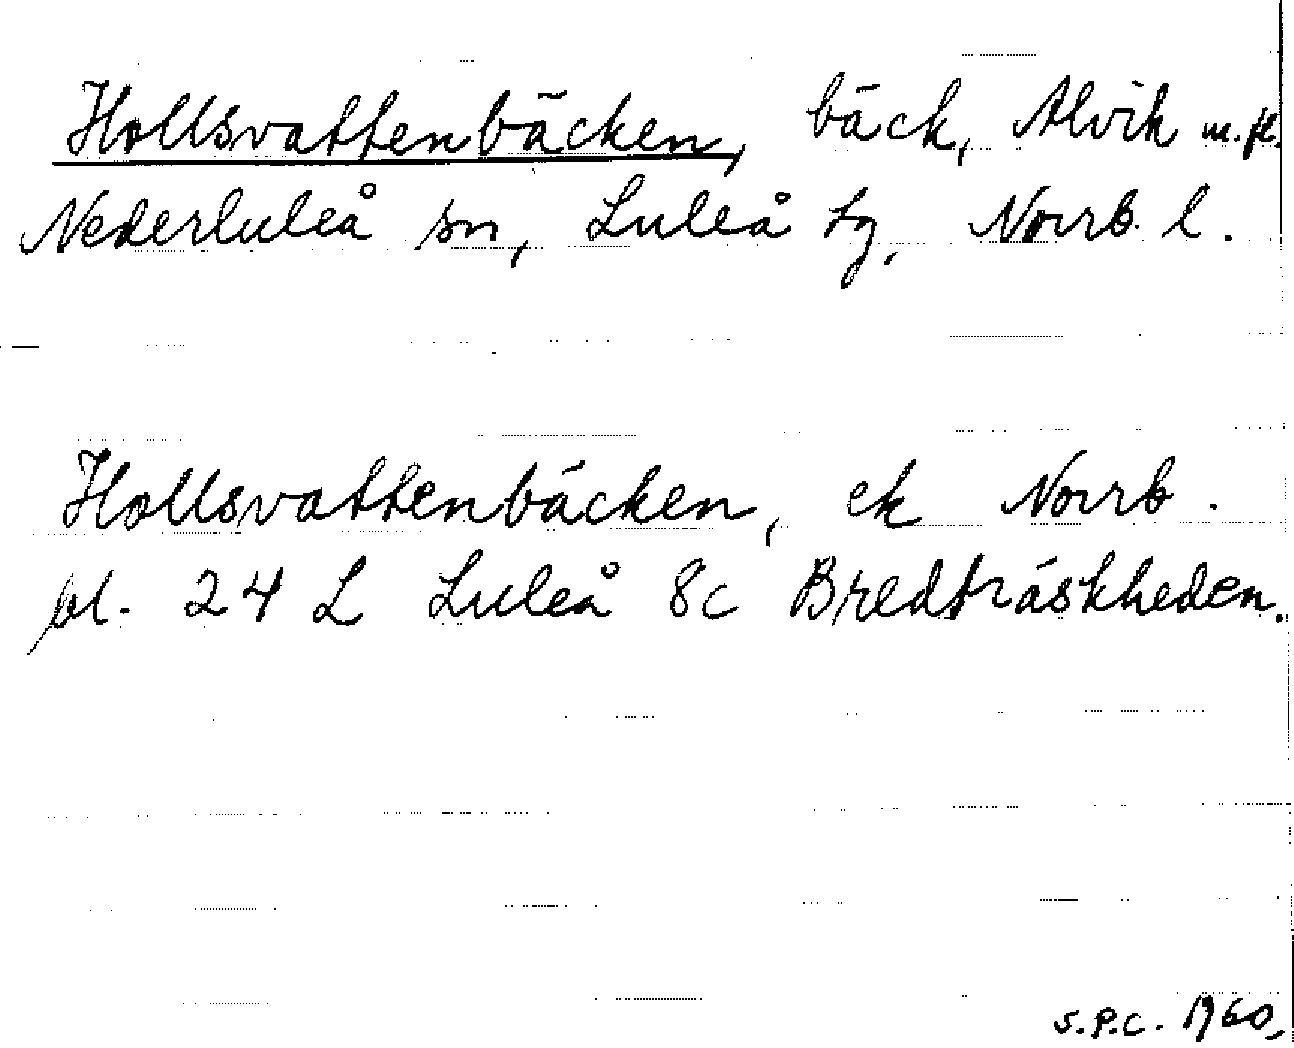 Hollsvattenbäcken, bäck, Alvik m.fl.
Nederluleå sn, Luleå tg, Norrb. l.
Hollsvattenbäcken, ek Norrb.
bl. 24 L Luleå 8c Bredträskheden.
S.P.C. 1960,